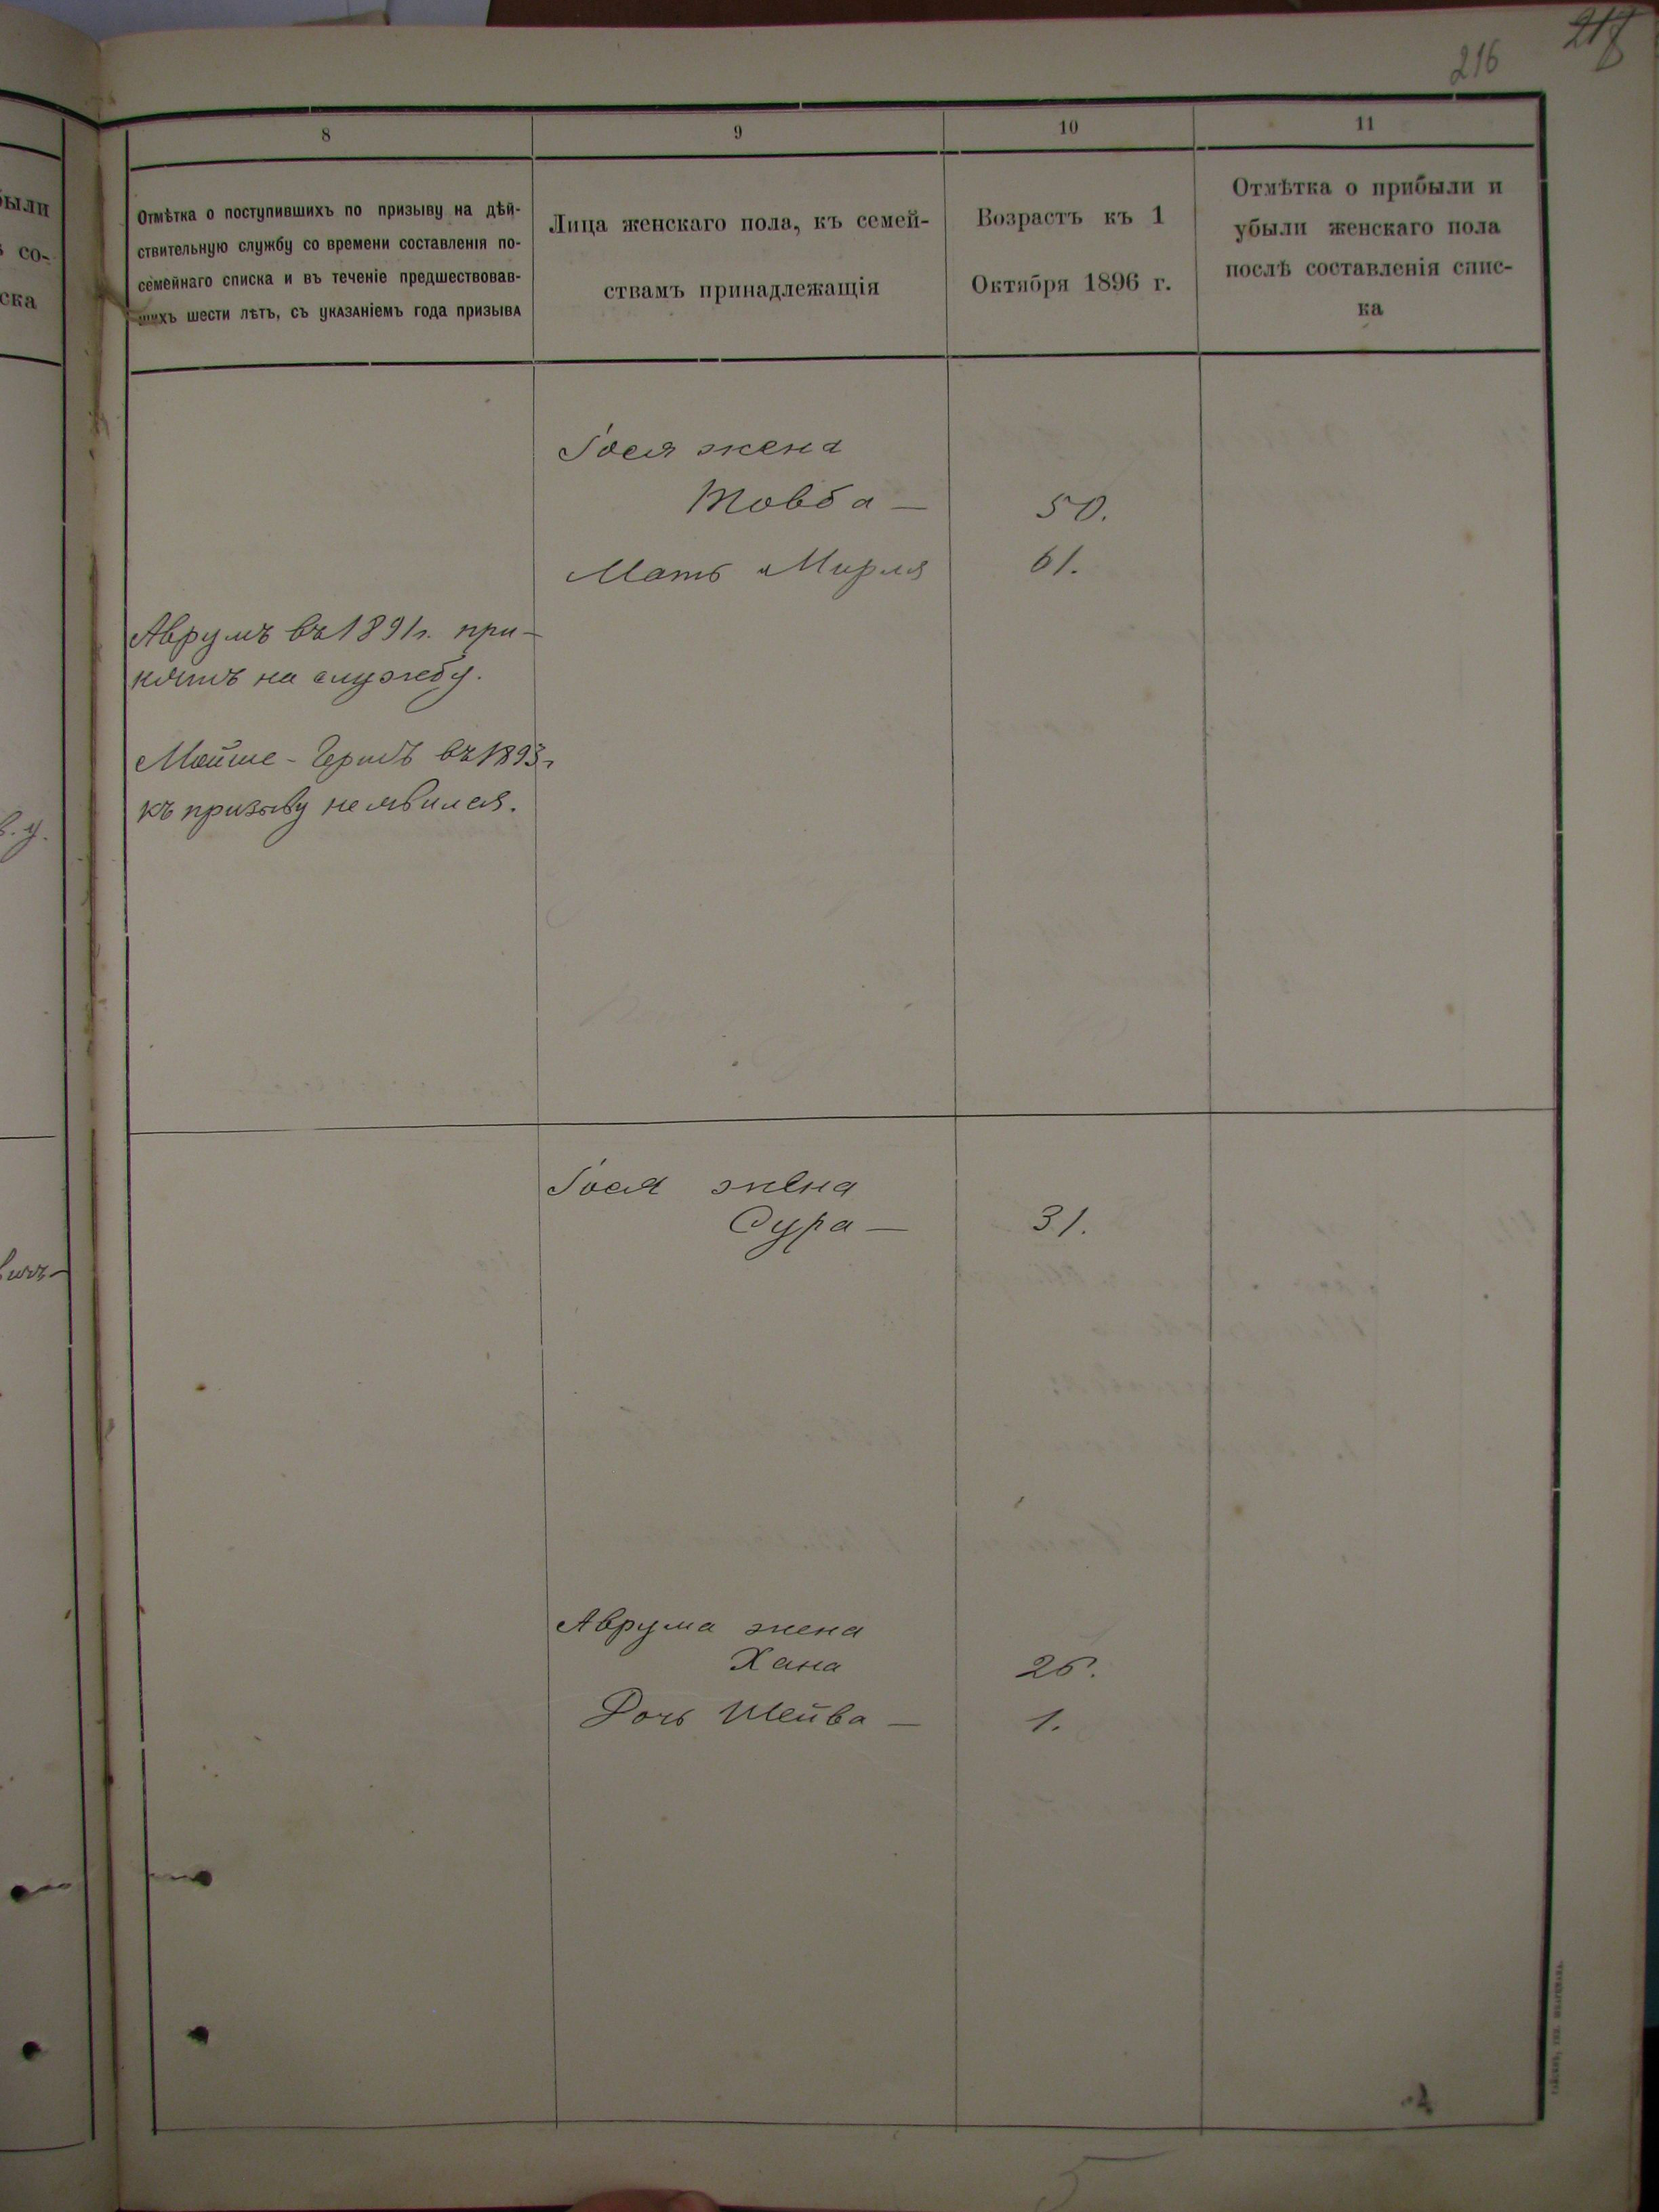 216
217
8
9
10
11
Отмѣтка о поступившихъ по призыву на дѣй-
ствительную службу со времени составленія по-
семейнаго списка и въ теченіе предшествовав-
шихъ шести лѣтъ, съ указаніемъ года призыва
Лица женскаго пола, къ семей-
ствамъ принадлежащія
Возрастъ къ 1
Октября 1896 г.
Отмѣтка о прибыли и
убыли женскаго пола
послѣ составленія спис-
ка
были
со-
ска
Іося жена
Товба — 50.
Мать Мирля 61.
Аврумъ въ 1891 г. при-
нятъ на службу.
Мойше-Гершъ въ 1893 г
къ призыву не явился.
в. у.
Іося жена
Сура — 31.
Аврума жена
Хана 25.
Дочь Шейва — 1.
5